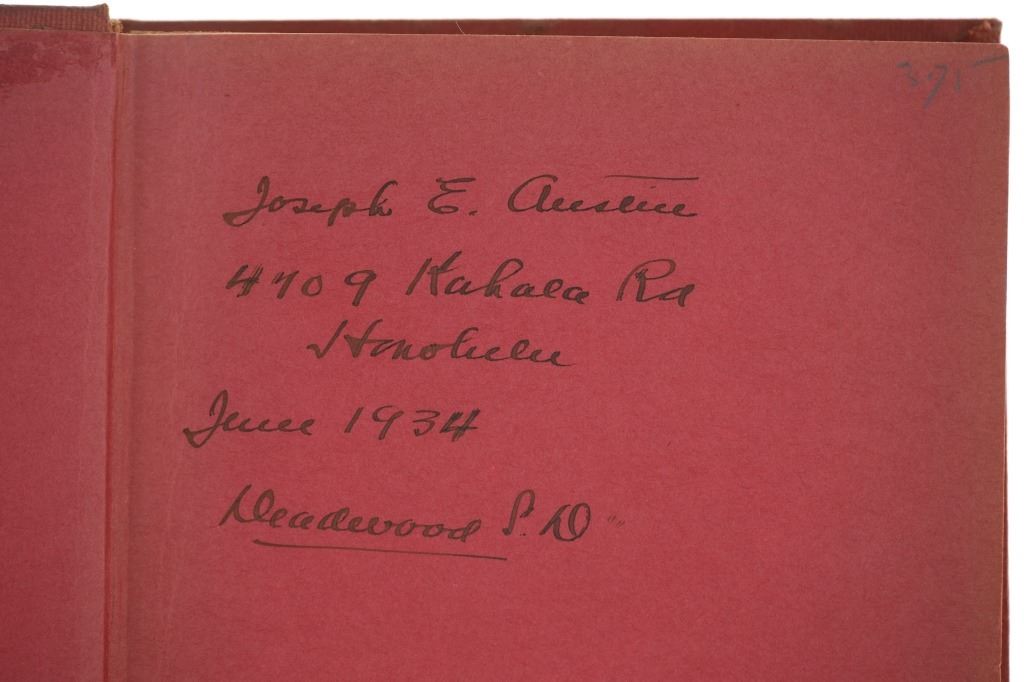 375
Joseph E. Austin
4709 Kahala Rd
Honolulu
June 1934
Deadwood S. D"